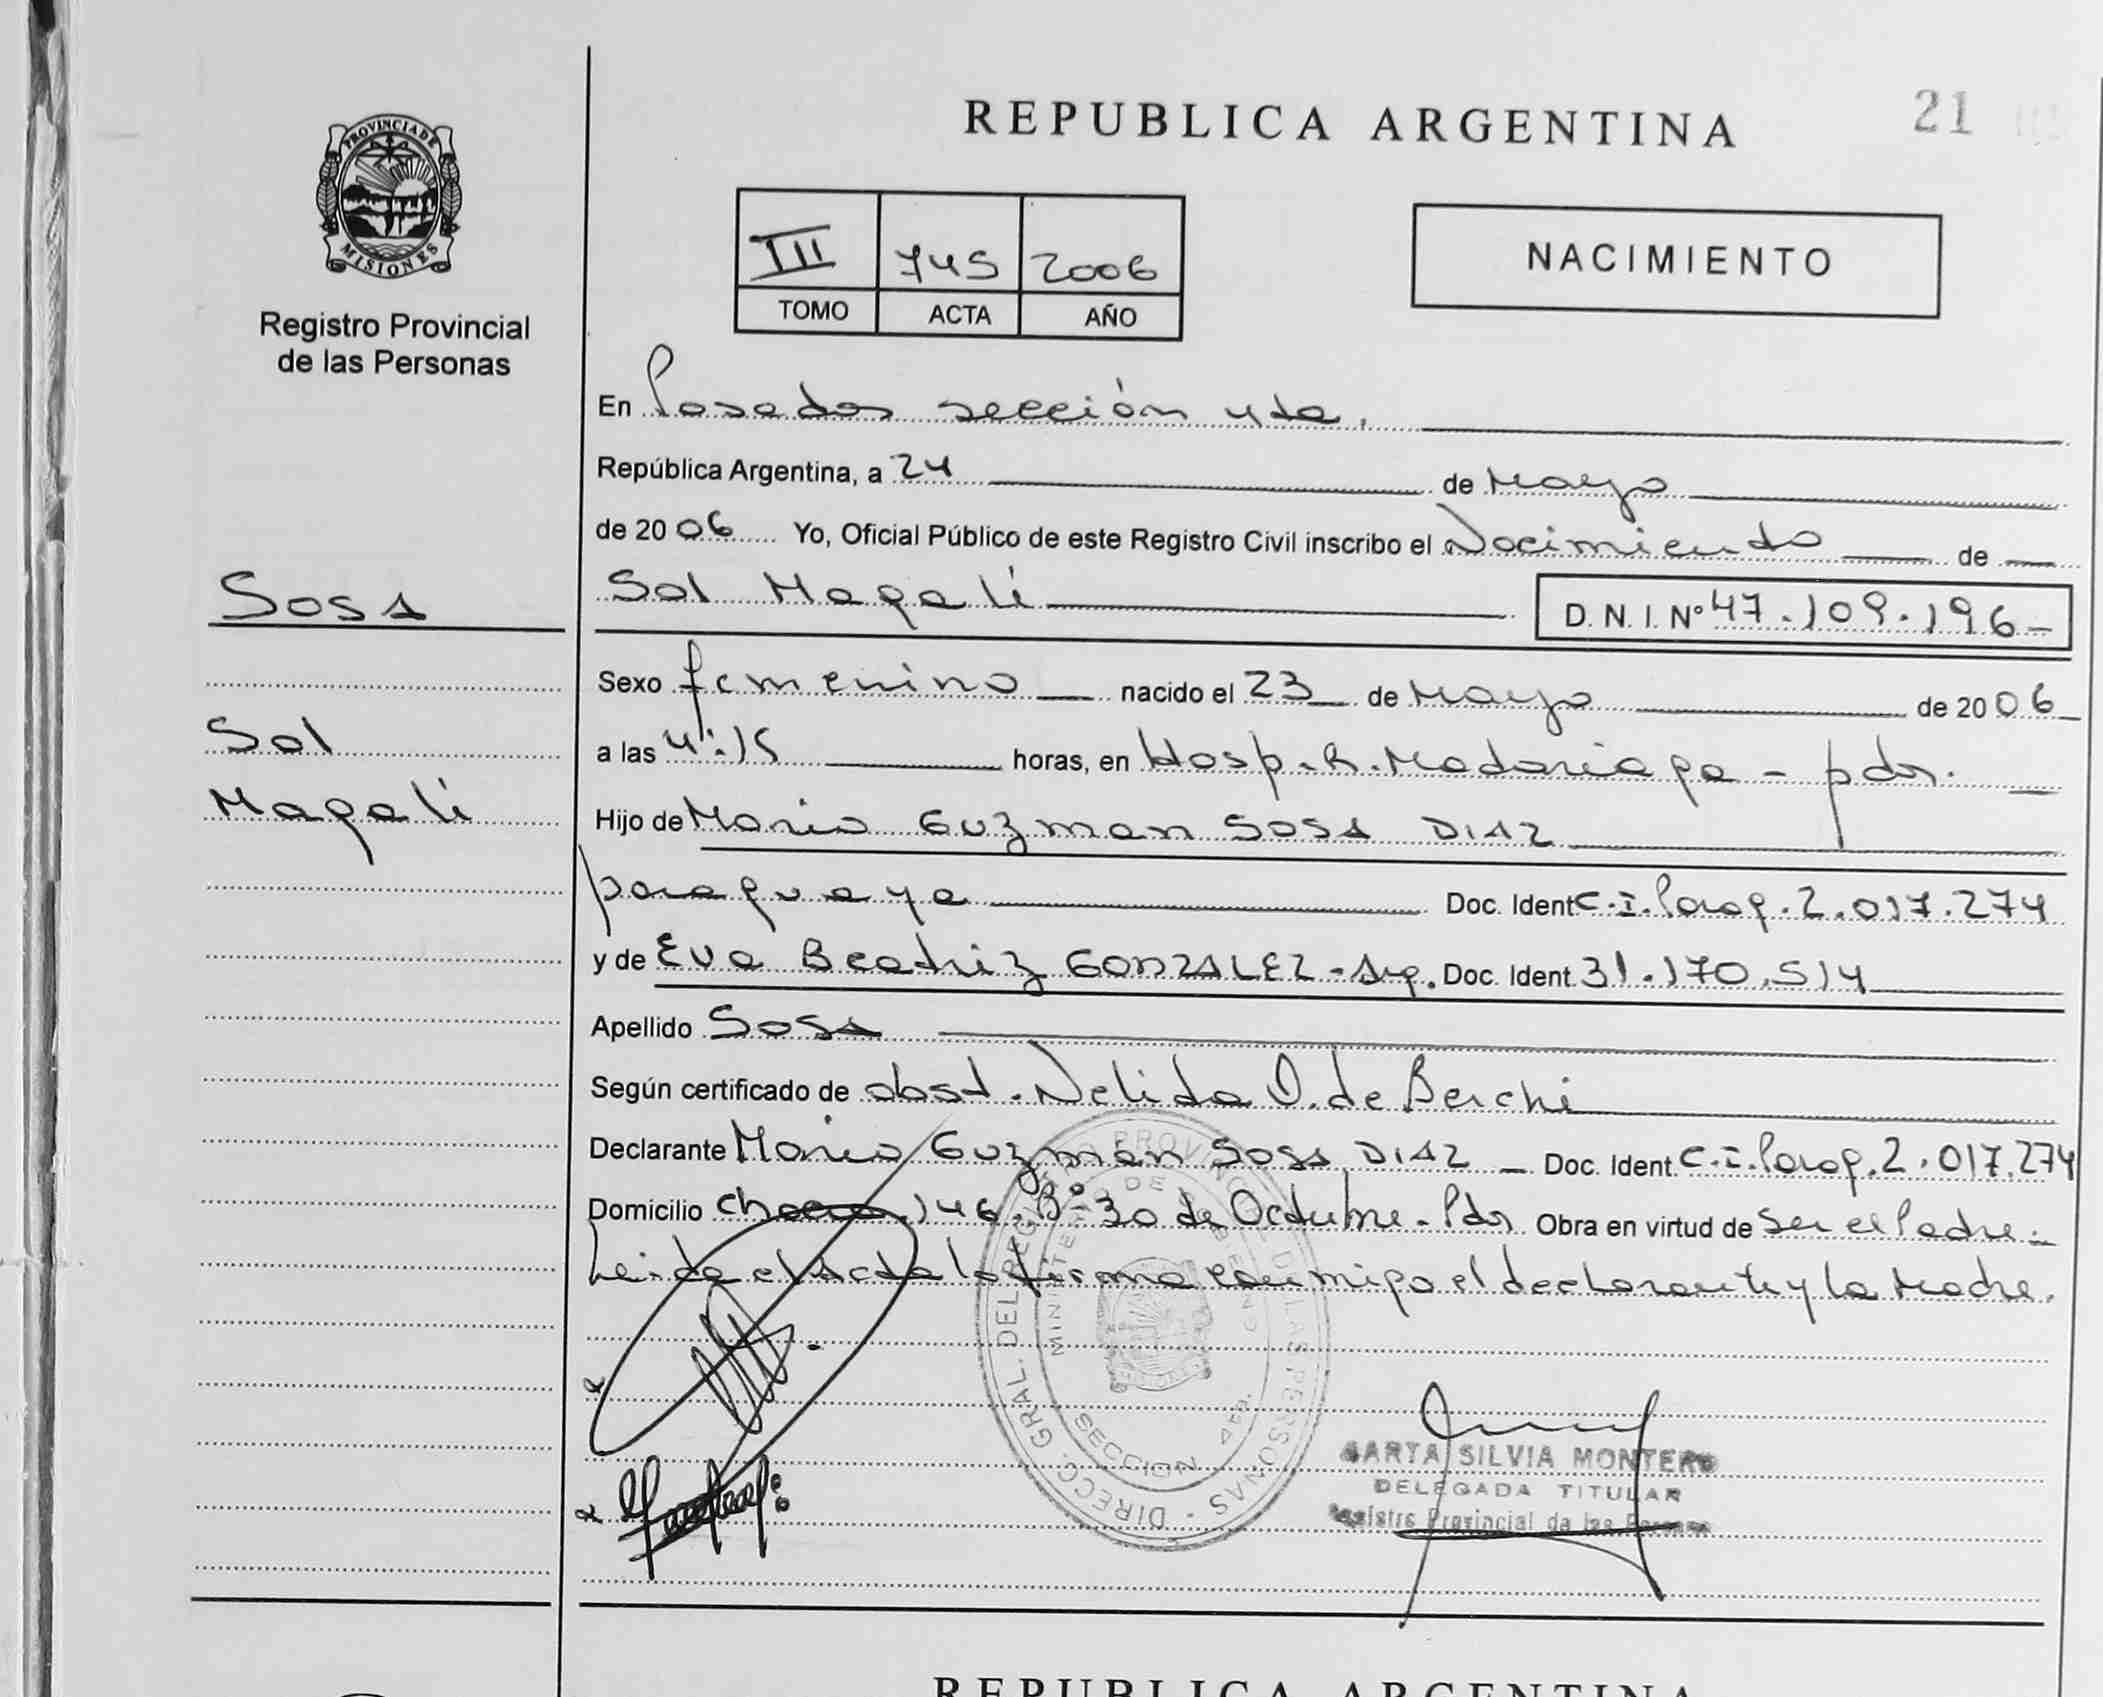 REPUBLICA ARGENTINA
21
PROVINCIA DE
MISIONES
Registro Provincial
de las Personas
III 745 2006
TOMO ACTA AÑO
NACIMIENTO
En Posadas sección 4ta.
República Argentina, a 24 de Mayo
de 2006 Yo, Oficial Público de este Registro Civil inscribo el Nacimiento de
Sosa
Sol Magalí D.N.I. Nº 47.109.196-
Sexo femenino nacido el 23 de Mayo de 2006
Sol
a las 4:15 horas, en Hosp. R. Madariaga - pdas.
Magalí
Hijo de Mario Guzman SOSA DIAZ
paraguaya Doc. Ident C.I. Parag. 2.017.274
y de Eva Beatriz GONZALEZ - Arg. Doc. Ident. 31.170.514
Apellido Sosa
Según certificado de obst. Nelida O. de Berchi
Declarante Mario Guzmán SOSA DIAZ Doc. Ident. C.I. Parag. 2.017.274
Domicilio 146. Bº 30 de Octubre - Pdas Obra en virtud de Ser el Padre.
Leida el Acta la firma conmigo el declarante y la Madre.
DIRECC. GRAL. DEL REGISTRO PROVINCIAL DE LAS PERSONAS
MINISTERIO DE GOBIERNO
SECCION 4ta.
MARTA SILVIA MONTERO
DELEGADA TITULAR
Registro Provincial de las Personas
REPUBLICA ARGENTINA